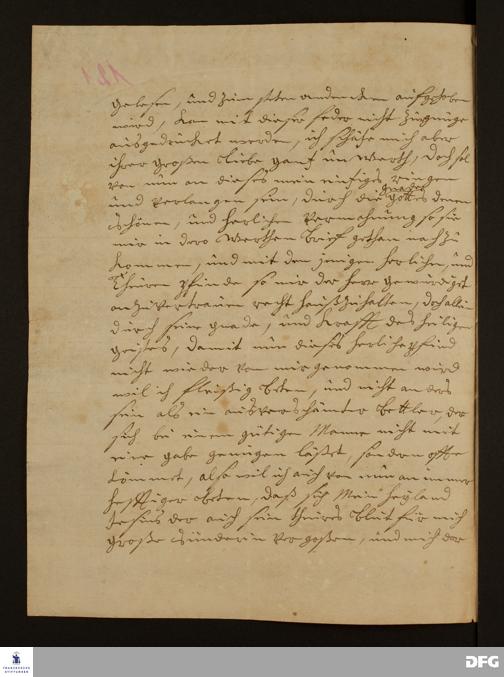 gelesen, und zum steten andencken aufgehoben
wird, kan mit dieser feder nicht zur gnüge
ausgedrücket werden, ich schätze mich aber
ihrer großen Liebe gantz un werth, doch sol
von nun an dieses mein einziges ringen
und verlangen sein, durch die gnade Gottes denen
schönen, und herlichen vermahnung so sie
mir in dero werthen brief gethan nach zu
kommen, und mit den jenigen herlichen, und
theuren pfunde so mir der herr gewürdiget
an zu vertrauen recht hauß zu halten, doch allein
durch seine gnade, und Krafft des heiligen
geistes, damit nun dieses herliche pfund
nicht wieder von mir genommen wird
wil ich fleißig beten, und nicht anders
sein als ein unverschämter bettler, der
sich bei einem gütigen Manne nicht mit
eine gabe genügen läßet, sondern offte
kömmet, also wil ich auch von nun an immer
hefftiger beten, daß sich Mein heyland
Jesus der auch sein theures blut für mich
große sünderin vergoßen, und mich der
FRANCKESCHE
STIFTUNGEN
DFG